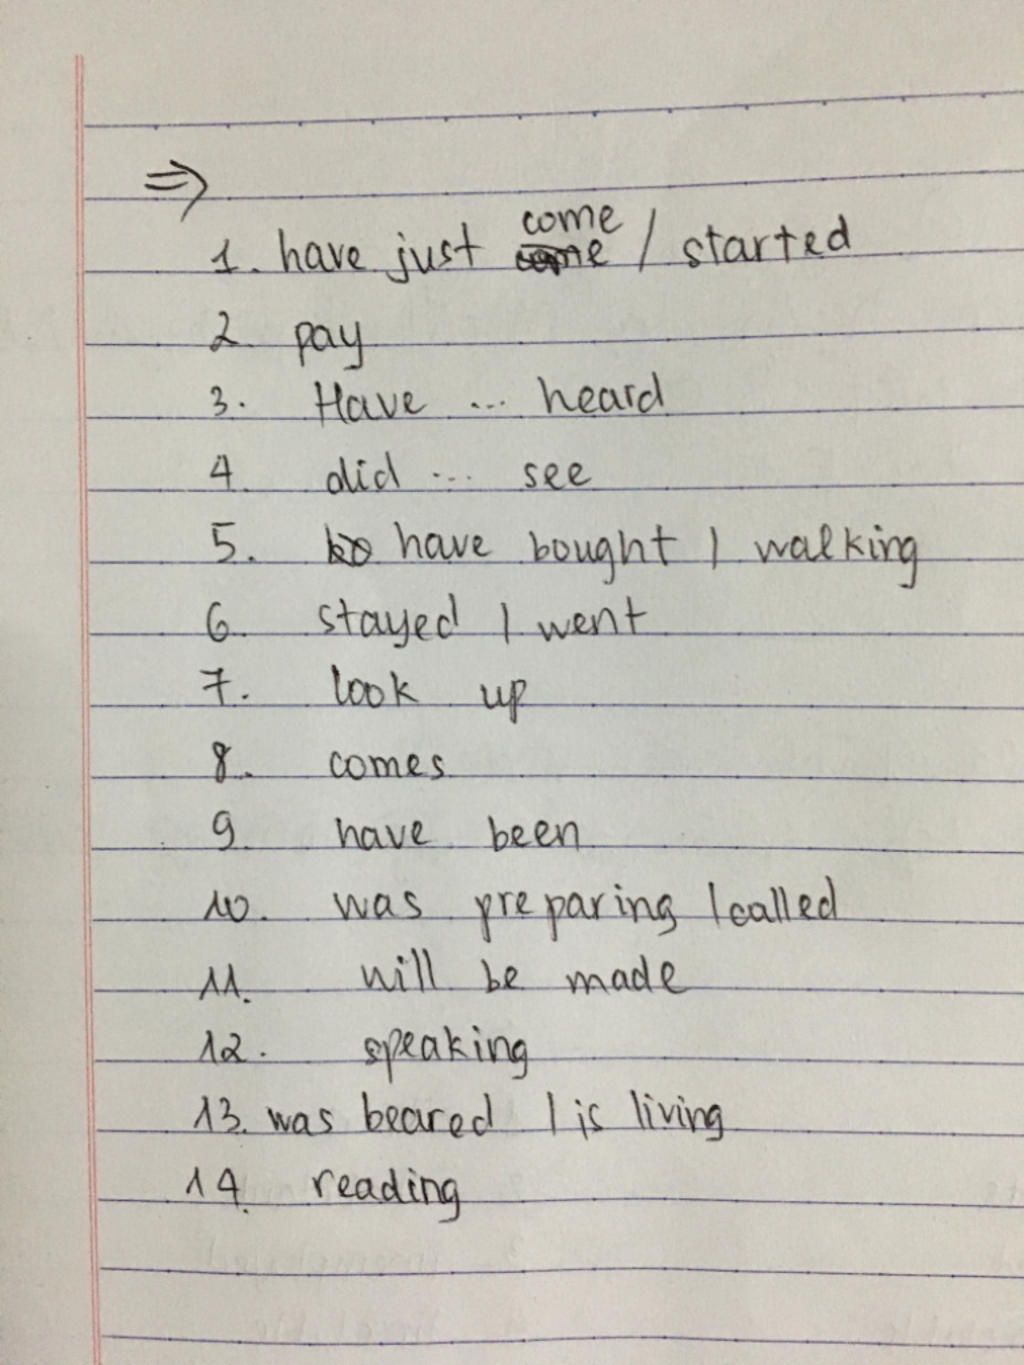 ⇒
come
1. have just come / started
2. pay
3. Have ... heard
4. did ... see
5. have bought / walking
6. stayed / went
7. look up
8. comes
9. have been
10. was preparing / called
11. will be made
12. speaking
13. was beared / is living
14. reading